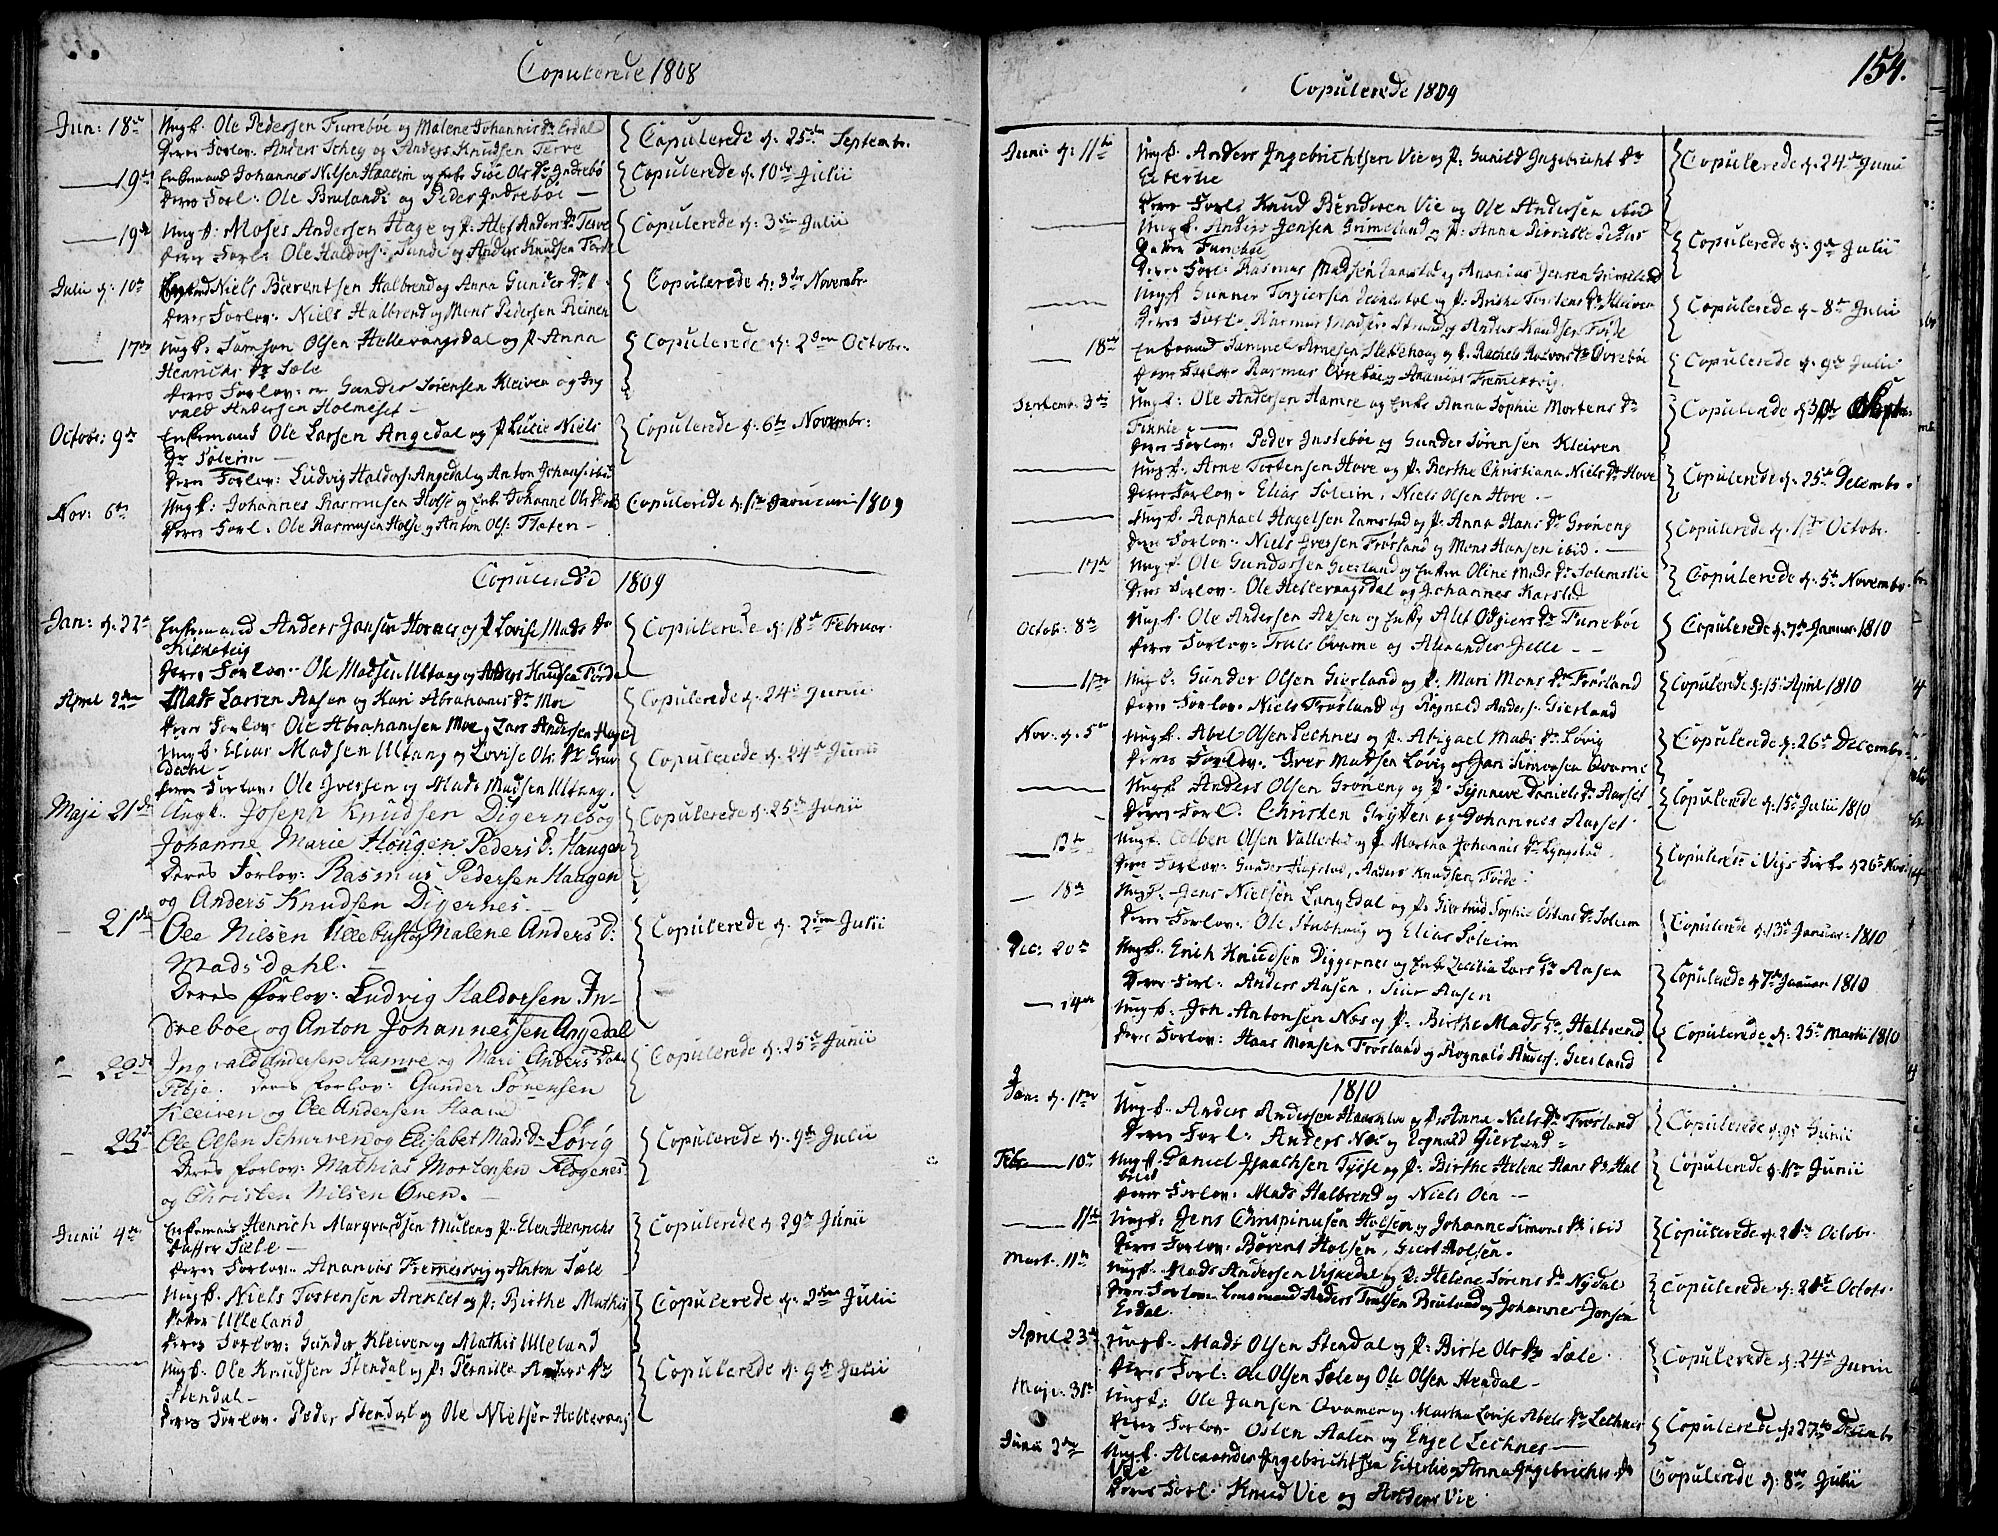 Copulerede 1808
Jun: 18de Ungk. Ole Pedersen Furrebøe og Malene Johannis Dr Erdal
Deres Forlov: Anders Schey og Anders Knudsen Terve
Copulerede d. 25de Septembr.
19de Enkemand Johannes Nilsen Haaeim og Enke Giøe Ols Dr Indrebø
Deres Forl: Ole Bruland og Peder Indrebøe
Copulerede d. 10de Julii
19de Ungk. Moses Andersen Hage og P. Alet Anders Dr Terve
Deres Forl: Ole Haldors: Sunde og Anders Knudsen Førde
Copulerede d: 3die Julii
Julii d. 10de Niels Bærentsen Halbrend og Anna Gunders Dr
Deres Forlov: Niels Halbrend og Mons Pedersen Reinen
Copulerede d: 3die Novembr.
17de Ungk: Samson Olsen Hellevangsdal og P. Anna
Henrichs Dr Sæle
Deres Forlov: Gunder Sørensen Kleiven og Ing
vald Andersen Holmeset
Copulerede d: 2den Octobr.
Octobr: 9de Enkemand Ole Larsen Angedal og P. Lucie Niels
Dr Soleim
Deres Forlov: Ludvig Haldors: Angedal og Anton Johans: ibid
Copulerede d. 6te Novembr:
Nov: 6te Ungk: Johannes Rasmusen Holse og Enk. Johanne Ols Dr ibid
Deres Forl: Ole Rasmusen Holse og Anton Ols: Floten
Copulerede d: 1te Januarii 1809
Copulerede 1809
Jan: d. 22de Enkemand Anders Jansen Hornes og P. Lovise Mads Dr
Deres Forlov: Ole Madsen Ultang og Anders Knudsen Førde
Copulerede d. 18de Februar.
April 2den Mads Larsen Aasen og Kari Abrahams Dr Moe
Deres Forlov: Ole Abrahamsen Moe og Lars Andersen Hage
Copulerede d: 24de Junii
Ungk. Elias Madsen Ultang og Lovise Ols Dr
Deres Forlov: Ole Iversen og Mads Madsen Ultang.
Copulerede d. 24de Junii
Maji 21de Ungk. Joseph Knudsen Digernes og
Johanne Marie Hougen Peders D: Haugen
Deres Forlov: Rasmus Pedersen Haugen
og Anders Knudsen Digernes.
Copulerede d. 25de Junii
21de Ole Nilsen Ullebust og Malene Anders D:
Madsdahl.
Deres Forlov: Ludvig Haldorsen In-
drebøe og Anton Johannessen Angedal
Copulerede d: 2den Julii
22de Ingvald Andersen Hamre og Mari Anders Datter
Fitje. Deres forlov: Gunder Sørensen
Kleiven og Ole Andersen Haave
Copulerede d. 25de Junii
23de Ole Olsen Schurven og Elisabet Mads Dr Løvig
Deres forlov: Mathias Mortensen Flogenes
og Christen Nilsen Øren.
Copulerede d: 9de Julii
Junii 4de Enkemand Henrich Margvardsen Mule og P. Elen Henrichs
Datter Siele
Deres Forlov: Ananias Fremersvig og Anton Sæle
Copulerede d 29de Junii
Ungk. Niels Tostensen Areklet og P: Birthe Mathis
Datter Ulleland
Deres Forlov: Gunder Kleiven og Mathis Ulleland
Copulerede d: 2den Julii
Ungk. Ole Knudsen Stendal og P: Pernille Anders Dr
Stendal
Deres Forlov: Peder Stendal og Ole Nielsen Hellevang
Copulerede d. 9de Julii
154.
Copulerede 1809
Junii d: 11te Ungk. Anders Ingebrichtsen Vie og P: Gunild Ingebricht Dr
Eiterlie
Deres Forl: Knud Bendixen Vie og Ole Andersen ibid
Copulerede d. 24de Junii
Ungk. Anders Jensen Grimeland og P. Anna Pernille Peders
Datter Furrebøe
Deres Forl: Rasmus Madsen Jamstad og Ananias Jensen Grimeland
Copulerede d: 9de Julii
Ungk Gunner Torgiersen og P. Birthe Tostens Dr Kleiven
Deres Forl: Rasmus Mads: Strand og Anders Knudsen Førde
Copulerede d. 8de Julii
18de Enkemand Sammel Arnesen Slettehoug og P. Rachel Halvors Dr Øvrebøe
Deres Forlov: Rasmus Øvrebøe og Ananias Fremersvig
Copulerede d: 9de Julii
Septemb: 3die Ungk: Ole Andersen Hamre og Enke Anna Sophie Mortens Dr
Finnie
Deres Forlov: Peder Instebøe og Gunder Sørensen Kleiven
Copulerede d Septbr.
Ungk: Arne Tostensen Hove og P. Berthe Christiana Niels Dr Hove
Deres Forlov: Elias Soleim, Niels Olsen Hove.
Copulerede d: 25de Decembr.
Ungk: Raphael Hagelsen Jamstad og P. Anna Hans Dr Grøneng
Deres Forlov: Niels Iversen Frøsland og Mons Hansen ibid.
Copulerede d. 1te Octobr.
17de Ungk Ole Gundersen Gierland og Enken Oline Mads Dr Solemslie
Deres Forlov: Ole Hellevangsdal og Johannes Karstad
Copulerede d: 5te Novembr.
Octob: 8de Ungk. Ole Andersen Aasen og Enke Alet Odgiers Dr Furrebøe
Deres Forlov: Truls Qvame og Alexander Jelle
Copulerede d. 7de Januar: 1810
Ungk: Gunder Olsen Gierland og P. Mari Mons Dr Frøsland
Deres Forlov: Niels Frøsland og Rognald Anders: Gierland
Copulerede d. 15de April 1810
Nov: d. 5te Ungk: Abel Olsen Lechnes og P. Abigael Mads Dr Løvig
Deres Forlov: Iver Madsen Løvig og Jan Simonsen Qvame
Copulerede d: 26de Decembr.
Ungk: Anders Olsen Grøneng og P. Synneve Daniels Dr Aarset
Deres Forl. Christen Grytten og Johannes Aarset
Copulerede d: 15de Julii 1810
13de Ungk. Colben Olsen Vallestad og P. Martha Johannis Dr Lyngstad
Deres Forlov: Gunder Hafstad, Anders Knudsen Førde
Copulerede i Vigs Kirke d 26de Nov:
18de Ungk. Jens Nielsen Langedal og P. Giertrud Sophie Østens Dr Soleim
Deres Forlov: Ole Stubhoug og Elias Soleim
Copulerede d. 13de Januar: 1810
Dec: 20de Ungk. Erich Knudsen Diggernes og Enke Cecilia Lars Dr Aasen
Deres Forl: Anders Aasen, Siur Aasen
Copulerede d 7de Januar 1810
Ungk: Joh: Antonsen Næs og P: Birthe Mads Dr Halbrend
Deres Forlov: Haas Monsen Frøsland og Rognald Anders: Gierland
Copulerede d: 25de Martii 1810
1810
Jan: d. Ungk. Anders Andersen og P. Anna Niels Dr Frøsland
Deres Forl: Anders Næs og Rognald Gierland
Copulerede d. Junii
Febr: 10de Ungk. Daniel Isaachsen Tysse og P. Birthe Helene Hans Dr Hal
brend
Deres Forlov: Mads Halbrend og Niels Øen
Copulerede d. 11te Junii
11te Ungk: Jens Chrispinusen Holsen og Johanne Simons Dr ibid
Deres Forlov: Børent Holsen, Giert Holsen.
Copulerede d: Octobr.
Mart: 11te Ungk: Mads Andersen Viskedal og P. Helene Sørens Dr Nydal
Deres Forlov: Lensmand Anders Trulsen Bruland og Johannes Jonsen
Erdal
Copulerede d: Octobr.
April 23de Ungk: Mads Olsen Stendal og P: Birte Ols Dr Sæle
Deres Forl: Ole Olsen Sæle og Ole Olsen Stendal
Copulerede d: 24de Junii
Maji: 31te Ungk: Ole Jansen Qvamer og Martha Lovise Abels Dr Lechnes
Deres Forlov: Osten Aalen og Engel Lechnes
Copulerede d. 27de Decembr.
Junii 2den Ungk. Alexander Ingebrichtsen Eiterlie og Anna Ingebrichts Dr
Vie
Deres Forl: Knud Vie og Anders Vie
Copulerede d. 8de Julii